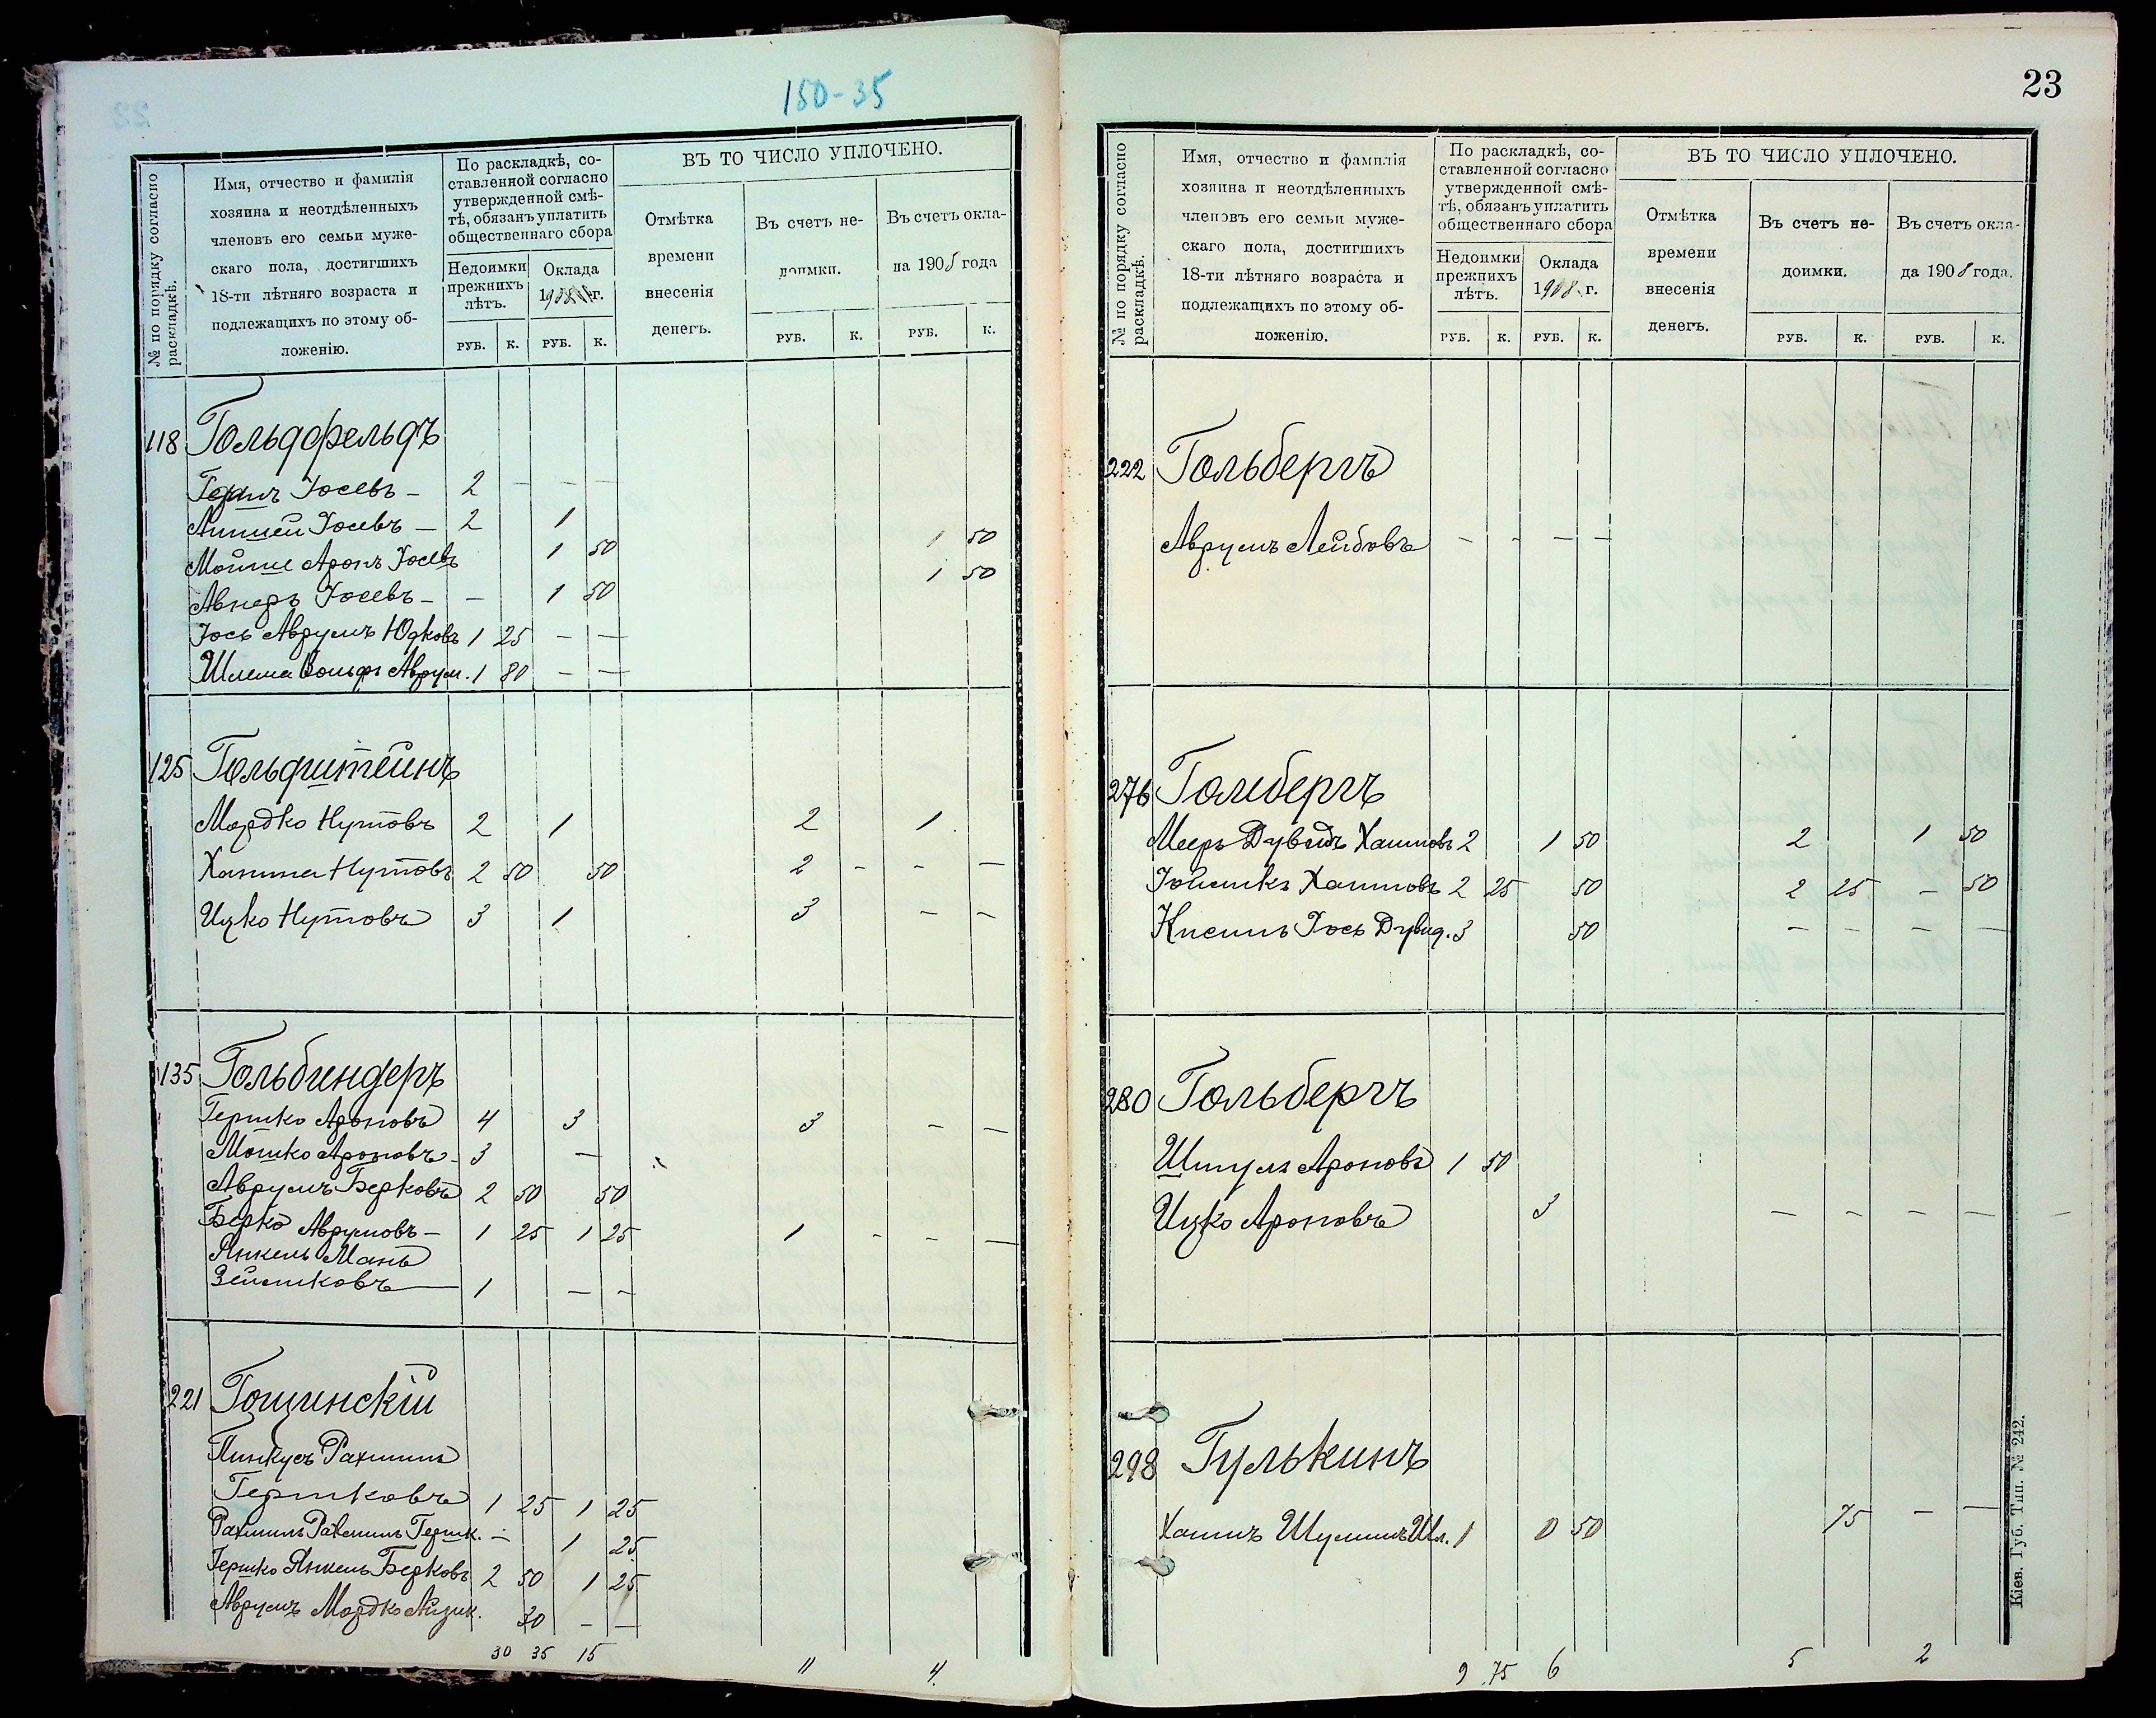 150-35
№ по порядку согласно раскладкѣ.
Имя, отчество и фамилія
хозяина и неотдѣленныхъ
членовъ его семьи муже-
скаго пола, достигшихъ
18-ти лѣтняго возраста и
подлежащихъ по этому об-
ложенію.
По раскладкѣ, со-
ставленной согласно
утвержденной смѣ-
тѣ, обязанъ уплатить
общественнаго сбора
Недоимки
прежнихъ
лѣтъ.
Оклада
1908 г.
РУБ. К. РУБ. К.
ВЪ ТО ЧИСЛО УПЛОЧЕНО.
Отмѣтка
времени
внесенія
денегъ.
Въ счетъ не-
доимки.
Въ счетъ окла-
да 1908 года
РУБ. К. РУБ. К.
118 Гольдфельдъ
Гершъ Іосевъ - 2 — — —
Аншей Іосевъ — 2 1
Мойше Аронъ Іосевъ 1 50 1 50
Авнеръ Іосевъ - — 1 50 1 50
Іось Аврумъ Юдковъ 1 25 — —
Шлема Вольфъ Аврум. 1 80 — —
125 Гольдштейнъ
Мордко Нутовъ 2 1 2 1
Хаима Нутовъ 2 50 50 2 - - —
Ицко Нутовъ 3 1 3 - -
135 Гольбиндеръ
Гершко Ароновъ 4 3 3 - —
Мошко Ароновъ - 3 —
Аврумъ Берковъ 2 50 50
Берко Аврумовъ - 1 25 1 25 1 - - —
Янкель Мань
Зейликовъ — 1 — -
221 Гощинскій
Пинкусъ Рахмиль
Гершковъ 1 25 1 25
Рахмиль Гершк. - 1 25
Гершко Янкель Берковъ 2 50 1 25
Аврумъ Мордко Айзик. 30 - —
30 35 15 11 4.
23
№ по порядку согласно раскладкѣ.
Имя, отчество и фамилія
хозяина и неотдѣленныхъ
членовъ его семьи муже-
скаго пола, достигшихъ
18-ти лѣтняго возраста и
подлежащихъ по этому об-
ложенію.
По раскладкѣ, со-
ставленной согласно
утвержденной смѣ-
тѣ, обязанъ уплатить
общественнаго сбора
Недоимки
прежнихъ
лѣтъ.
Оклада
1908 г.
РУБ. К. РУБ. К.
ВЪ ТО ЧИСЛО УПЛОЧЕНО.
Отмѣтка
времени
внесенія
денегъ.
Въ счетъ не-
доимки.
Въ счетъ окла-
да 1908 года.
РУБ. К. РУБ. К.
222 Гольбергъ
Аврумъ Лейбовъ - - — —
276 Голбергъ
Мееръ Дувидъ Хаимовъ 2 1 50 2 1 50
Хаимовъ 2 25 50 2 25 - 50
Іось Дувид. 3 50 — — — —
280 Гольбергъ
Шмуль Ароновъ 1 50
Ицко Ароновъ 3 — - — — —
298 Гулькинъ
Хаимъ Шулимъ Шл. 1 0 50 75 — —
9 .75 6 5 2
Кіев. Губ. Тип. № 242.